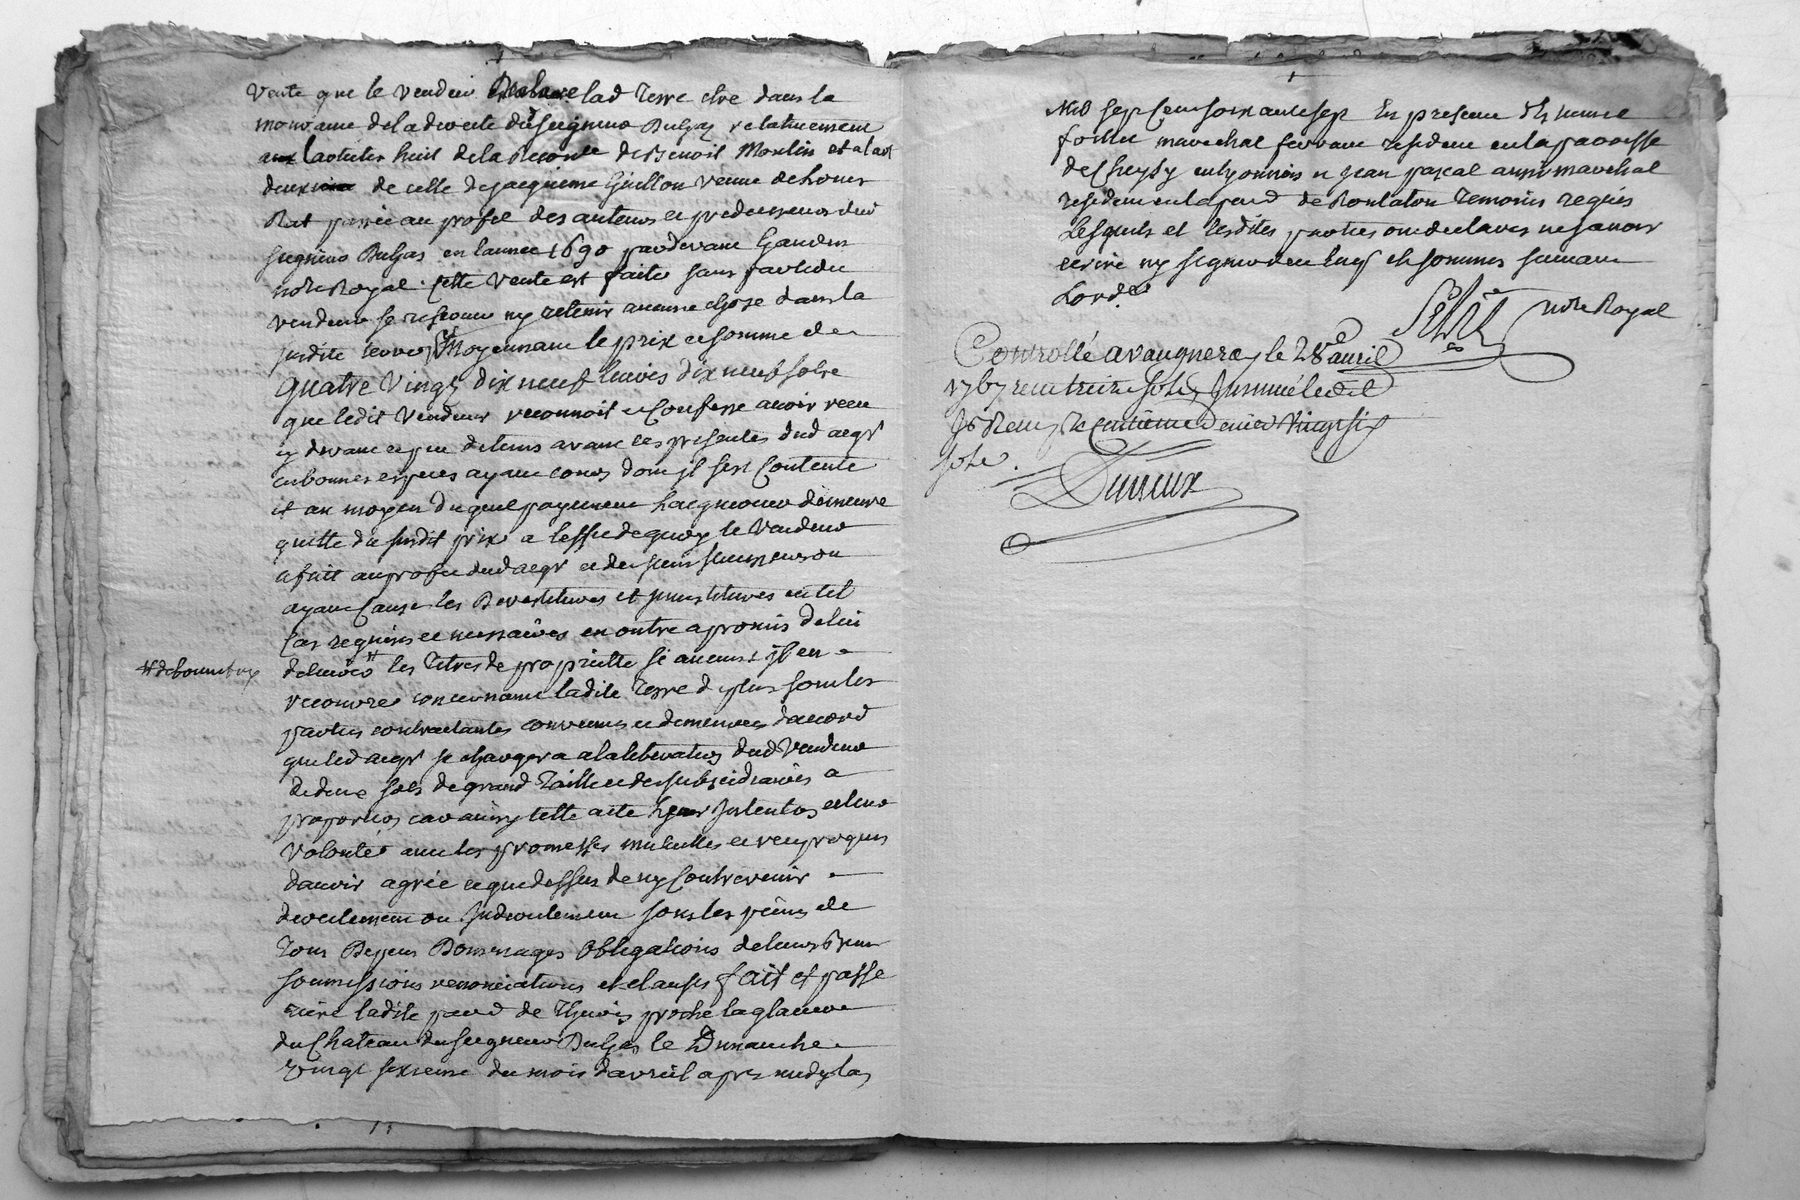 vente que le vendeur declare lad terre etre dans la
mouvance de la directe du seigneur Dulgas relativement
a larticle huit de la Reconce de Benoit Moulin et a lart
deux de celle de jacqueme Guillon veuve de
Rat passée au profit des auteurs et predecesseurs dud
seigneur Dulgas en lannee 1690 pardevant Gaudin
notre Royal. Cette vente est faite sans par ledit
vendeur se reserver ny retenir aucune chose dans la
susdite terre et Moyennant le prix et somme de
quatre vingt dix neuf livres dix neuf sols
que ledit vendeur reconnoit et Confesse avoir receu
cy devant et peu de tems avant ces presentes dud aeqr
en bonnes especes ayant cours dont jl sest Contenté
et au moyen du quel payement lacquereur demeure
quitte du susdit prix a leffet de quoy le vendeur
a fait au profit dud aeqr et des siens successeurs ou
ayant Cause les Devestitures et jnvestitures en tel
Cas requises et necessaires en outre a promis de lui
delivrer # les titres de propriette si aucuns jl en
# de bonne foy
recouvre concernant ladite terre de plus sont les
parties contractantes convenues et demeurees daccord
que led aeqr se chargera a la liberation dud vendeur
de deux sols de grand Taille et des subsidiaires a
proportion car ainsy cette acte leur Jntention et leur
volonté avec les promesses mutuelles et reciproques
davoir agréé ce que dessus de ny Contrevenir
directement ou Jndirectement sous les peines de
tous Depens Dommages Obligations de leurs biens
soumissions renonciations et clauses fait et passé
riere ladite paroisse de proche la
du Chateau du seigneur Dulgas le Dimanche
vingt sixieme du mois davril apres midy lan
Mil sept Cent soixante sept En presence
marechal ferrant resident en la paroisse
de en lyonnois et jean pascal aussi marechal
resident en la par de Rontalon temoins requis
lesquels et lesdites parties ont declarés ne savoir
ecrire ny signer de ce Enq et sommes suivant
Lord.ce
notre Royal
Controllé a vaugneray le 28e avril
1767 recu treize sols Jnsinué ledit
Jour Recu le centieme Denier Vingt six
sols.